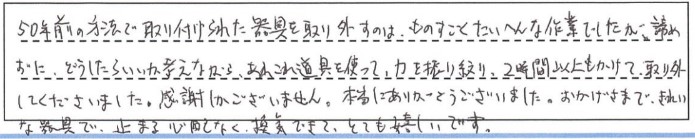 50年前の方法で取り付けられた器具を取り外すのは、ものすごくたいへんな作業でしたが、諦め
ずに、どうしたらいいか考えながら、あれこれ道具を使って、力を振り絞り、2時間以上もかけて、取り外
してくださいました。感謝しかございません。本当にありがとうございました。おかげさまで、きれい
な器具で、止まる心配なく、換気できて、とても嬉しいです。